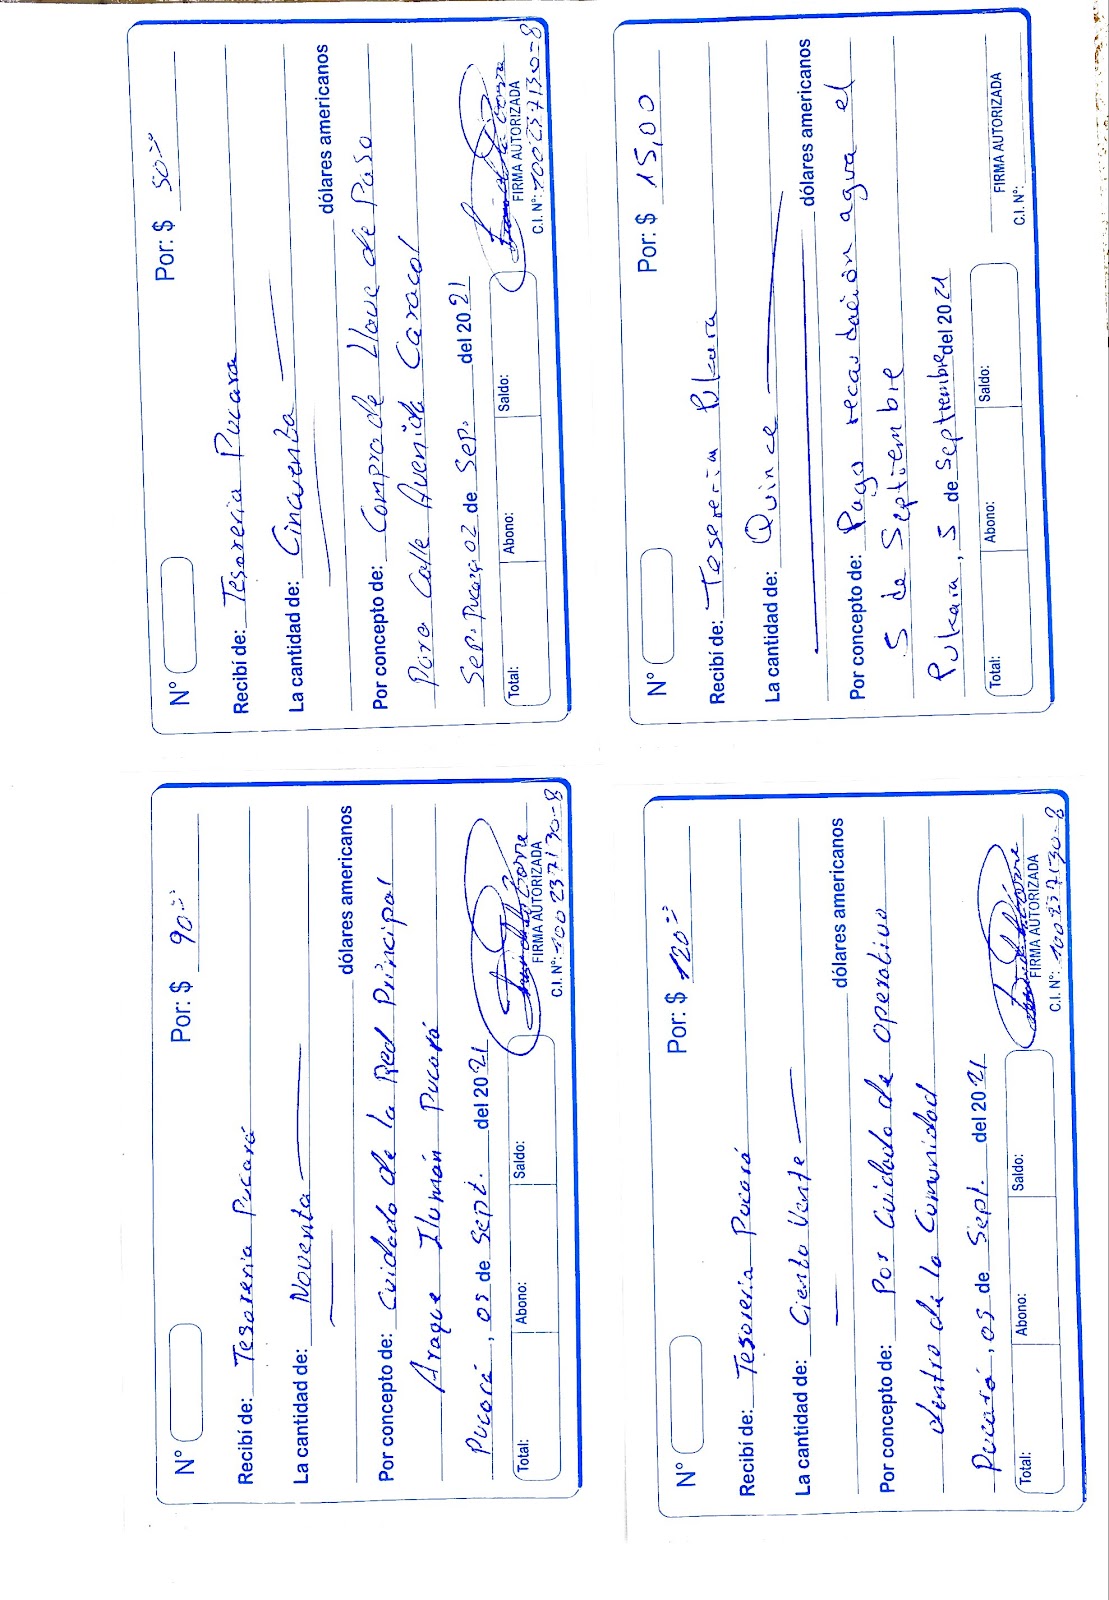 N° Por: $ 90.==
Recibí de: Tesoreria Pucará
La cantidad de: Noventa
dólares americanos
Por concepto de: Cuidado de la Red Principal
Araque Ilumán Pucará
Pucará, 05 de Sept. del 2021
Total: Abono: Saldo:
FIRMA AUTORIZADA
C.I. N°: 100237130-8
N° Por: $ 50.==
Recibí de: Tesoreria Pucara
La cantidad de: Cincuenta
dólares americanos
Por concepto de: Compra de Llave de Paso
Para Calle Avenida Caracol
Sep. Pucará 02 de Sep. del 2021
Total: Abono: Saldo:
FIRMA AUTORIZADA
C.I. N°: 100237130-8
N° Por: $ 120.==
Recibí de: Tesoreria Pucará
La cantidad de: Ciento Vente
dólares americanos
Por concepto de: Por Cuidado de Operativo
dentro de la Comunidad
Pucará, 05 de Sept. del 2021
Total: Abono: Saldo:
FIRMA AUTORIZADA
C.I. N°: 100237130-8
N° Por: $ 15,00
Recibí de: Tosereria Pukara
La cantidad de: Quince
dólares americanos
Por concepto de: Pago recaudación agua el
5 de Septiembre
Pukara, 5 de Septiembre del 2021
Total: Abono: Saldo:
FIRMA AUTORIZADA
C.I. N°: